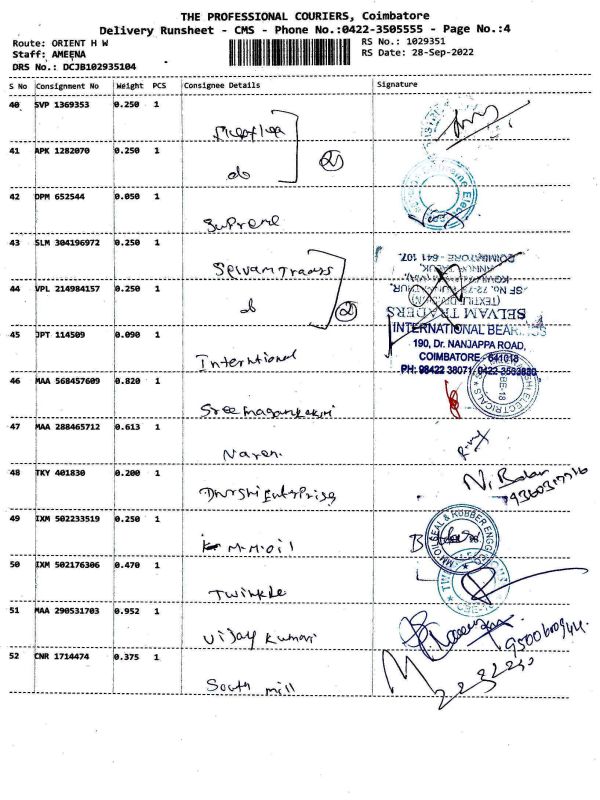 THE PROFESSIONAL COURIERS, Coimbatore
Delivery Runsheet - CMS - Phone No.:0422-3505555 - Page No.:4
Route: ORIENT H W
RS No.: 1029351
Staff: AMEENA
RS Date: 28-Sep-2022
DRS No.: DCJB102935104
S No Consignment No Weight PCS Consignee Details Signature
40 SVP 1369353 0.250 1
41 APK 1282070 0.250 1
do
2
42 DPM 652544 0.050 1
Supreme
43 SLM 304196972 0.250 1
Selvam Traders
COIMBATORE - 641 107.
44 VPL 214984157 0.250 1
do
2
(TEXTILE DIVISION)
SELVAM TRADERS
45 JPT 114509 0.090 1
International
INTERNATIONAL BEARINGS
190, Dr. NANJAPPA ROAD,
COIMBATORE - 641018
PH: 98422 38071, 0422-
46 MAA 568457609 0.820 1
ELECTRICALS
47 MAA 288465712 0.613 1
Naren
48 TKY 401830 0.200 1
Enterprises
N. Balan
49 IXM 502233519 0.250 1
M.M.oil
OIL SEAL & RUBBER ENGG
50 IXM 502176306 0.470 1
Twinkle
51 MAA 290531703 0.952 1
Vijay Kumari
52 CNR 1714474 0.375 1
South mill